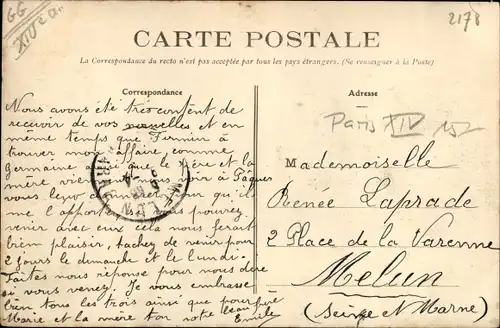 GG
XIVe ar
2178
CARTE POSTALE
La Correspondance du recto n'est pas acceptée par tous les pays étrangers. (Se renseigner à la Poste)
Correspondance
Nous avons été très content de
recevoir de vos nouvelles et en
même temps que Firmin à
trouver mon affaire comme
Germaine ainsi que le Père et la
mère voir à Pâques
vous que
me l'apporter vous pouvez
venir avec eux cela nous ferait
bien plaisir, tachez de venir pour
2 jours le dimanche et le lundi.
Faites nous réponse pour nous dire
si vous venez. Je vous embrasse
bien tous les trois ainsi que
Marie et la mère ton beau frère
Emile
Adresse
Paris XIV 152
Mademoiselle
Renée Laprade
2 Place de la Varenne
Melun
(Seine et Marne)